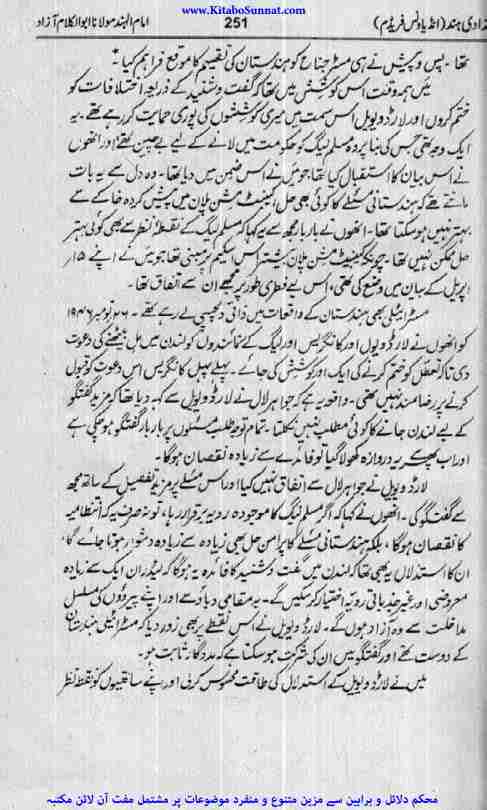 www.KitaboSunnat.com
زادی ہند (انڈیا ونس فریڈم)
251
امام الہند مولانا ابوالکلام آزاد
تھا۔ پس و پیش نے ہی مسٹر جناح کو ہندستان کی تقسیم کا موقع فراہم کیا۔
میں ہمہ وقت اس کوشش میں تھا کہ گفت و شنید کے ذریعہ اختلافات کو
ختم کروں اور لارڈ ویویل اس سمت میں میری کوششوں کی پوری حمایت کر رہے تھے۔ یہ
ایک وجہ تھی جس کی بنا پر وہ مسلم لیگ کو حکومت میں لانے کے لیے بے چین تھے اور انھوں
نے اس بیان کا استقبال کیا تھا جو میں نے اس ضمن میں دیا تھا۔ وہ دل سے یہ بات
مانتے تھے کہ ہندستانی مسئلے کا کوئی بھی حل کیبنٹ مشن پلان میں پیش کردہ خاکے سے
بہتر نہیں ہو سکتا تھا۔ انھوں نے بار بار مجھ سے یہ کہا کہ مسلم لیگ کے نقطۂ نظر سے بھی کوئی بہتر
حل ممکن نہیں تھا۔ چونکہ کیبنٹ مشن پلان بیشتر اس اسکیم پر مبنی تھا جو میں نے اپنے ۱۵
اپریل کے بیان میں وضع کی تھی، اس لیے فطری طور پر مجھے ان سے اتفاق تھا۔
مسٹر ایٹلی بھی ہندستان کے واقعات میں ذاتی دلچسپی لے رہے تھے۔ ۲۶ نومبر ۱۹۴۶
کو انھوں نے لارڈ ویویل اور کانگریس اور لیگ کے نمائندوں کو لندن میں مل بیٹھنے کی دعوت
دی تاکہ تعطل کو ختم کرنے کی ایک اور کوشش کی جائے۔ پہلے پہل کانگریس اس دعوت کو قبول
کرنے پر رضامند نہیں تھی۔ واقعہ یہ ہے کہ جواہر لال نے لارڈ ویویل سے کہہ دیا تھا کہ مزید گفتگو
کے لیے لندن جانے کا کوئی مطلب نہیں نکلتا۔ تمام توجہ طلب مسئلوں پر بار بار گفتگو ہو چکی ہے
اور اب پھر سے یہ دروازہ کھولا گیا تو فائدے سے زیادہ نقصان ہوگا۔
لارڈ ویویل نے جواہر لال سے اتفاق نہیں کیا اور اس مسئلے پر مزید تفصیل کے ساتھ مجھ
سے گفتگو کی۔ انھوں نے کہا کہ اگر مسلم لیگ کا موجودہ رویہ برقرار رہا، تو نہ صرف یہ کہ انتظامیہ
کا نقصان ہوگا، بلکہ ہندستانی مسئلے کا پرامن حل بھی زیادہ سے زیادہ دشوار ہوتا جائے گا،
ان کا استدلال یہ بھی تھا کہ لندن میں گفت و شنید کا فائدہ یہ ہوگا کہ لیڈران ایک سے زیادہ
معروضی اور غیر جذباتی رویہ اختیار کر سکیں گے۔ یہ مقامی دباؤ سے اور اپنے پیروؤں کی مسلسل
مداخلت سے وہ آزاد ہوں گے۔ لارڈ ویویل نے اس نقطے پر بھی زور دیا کہ مسٹر ایٹلی ہندستان
کے دوست تھے اور گفتگو میں ان کی شرکت ہو سکتا ہے کہ مددگار ثابت ہو۔
میں نے لارڈ ویویل کے استدلال کی طاقت محسوس کر لی اور اپنے ساتھیوں کو نقطۂ نظر
محکم دلائل و براہین سے مزین متنوع و منفرد موضوعات پر مشتمل مفت آن لائن مکتبہ